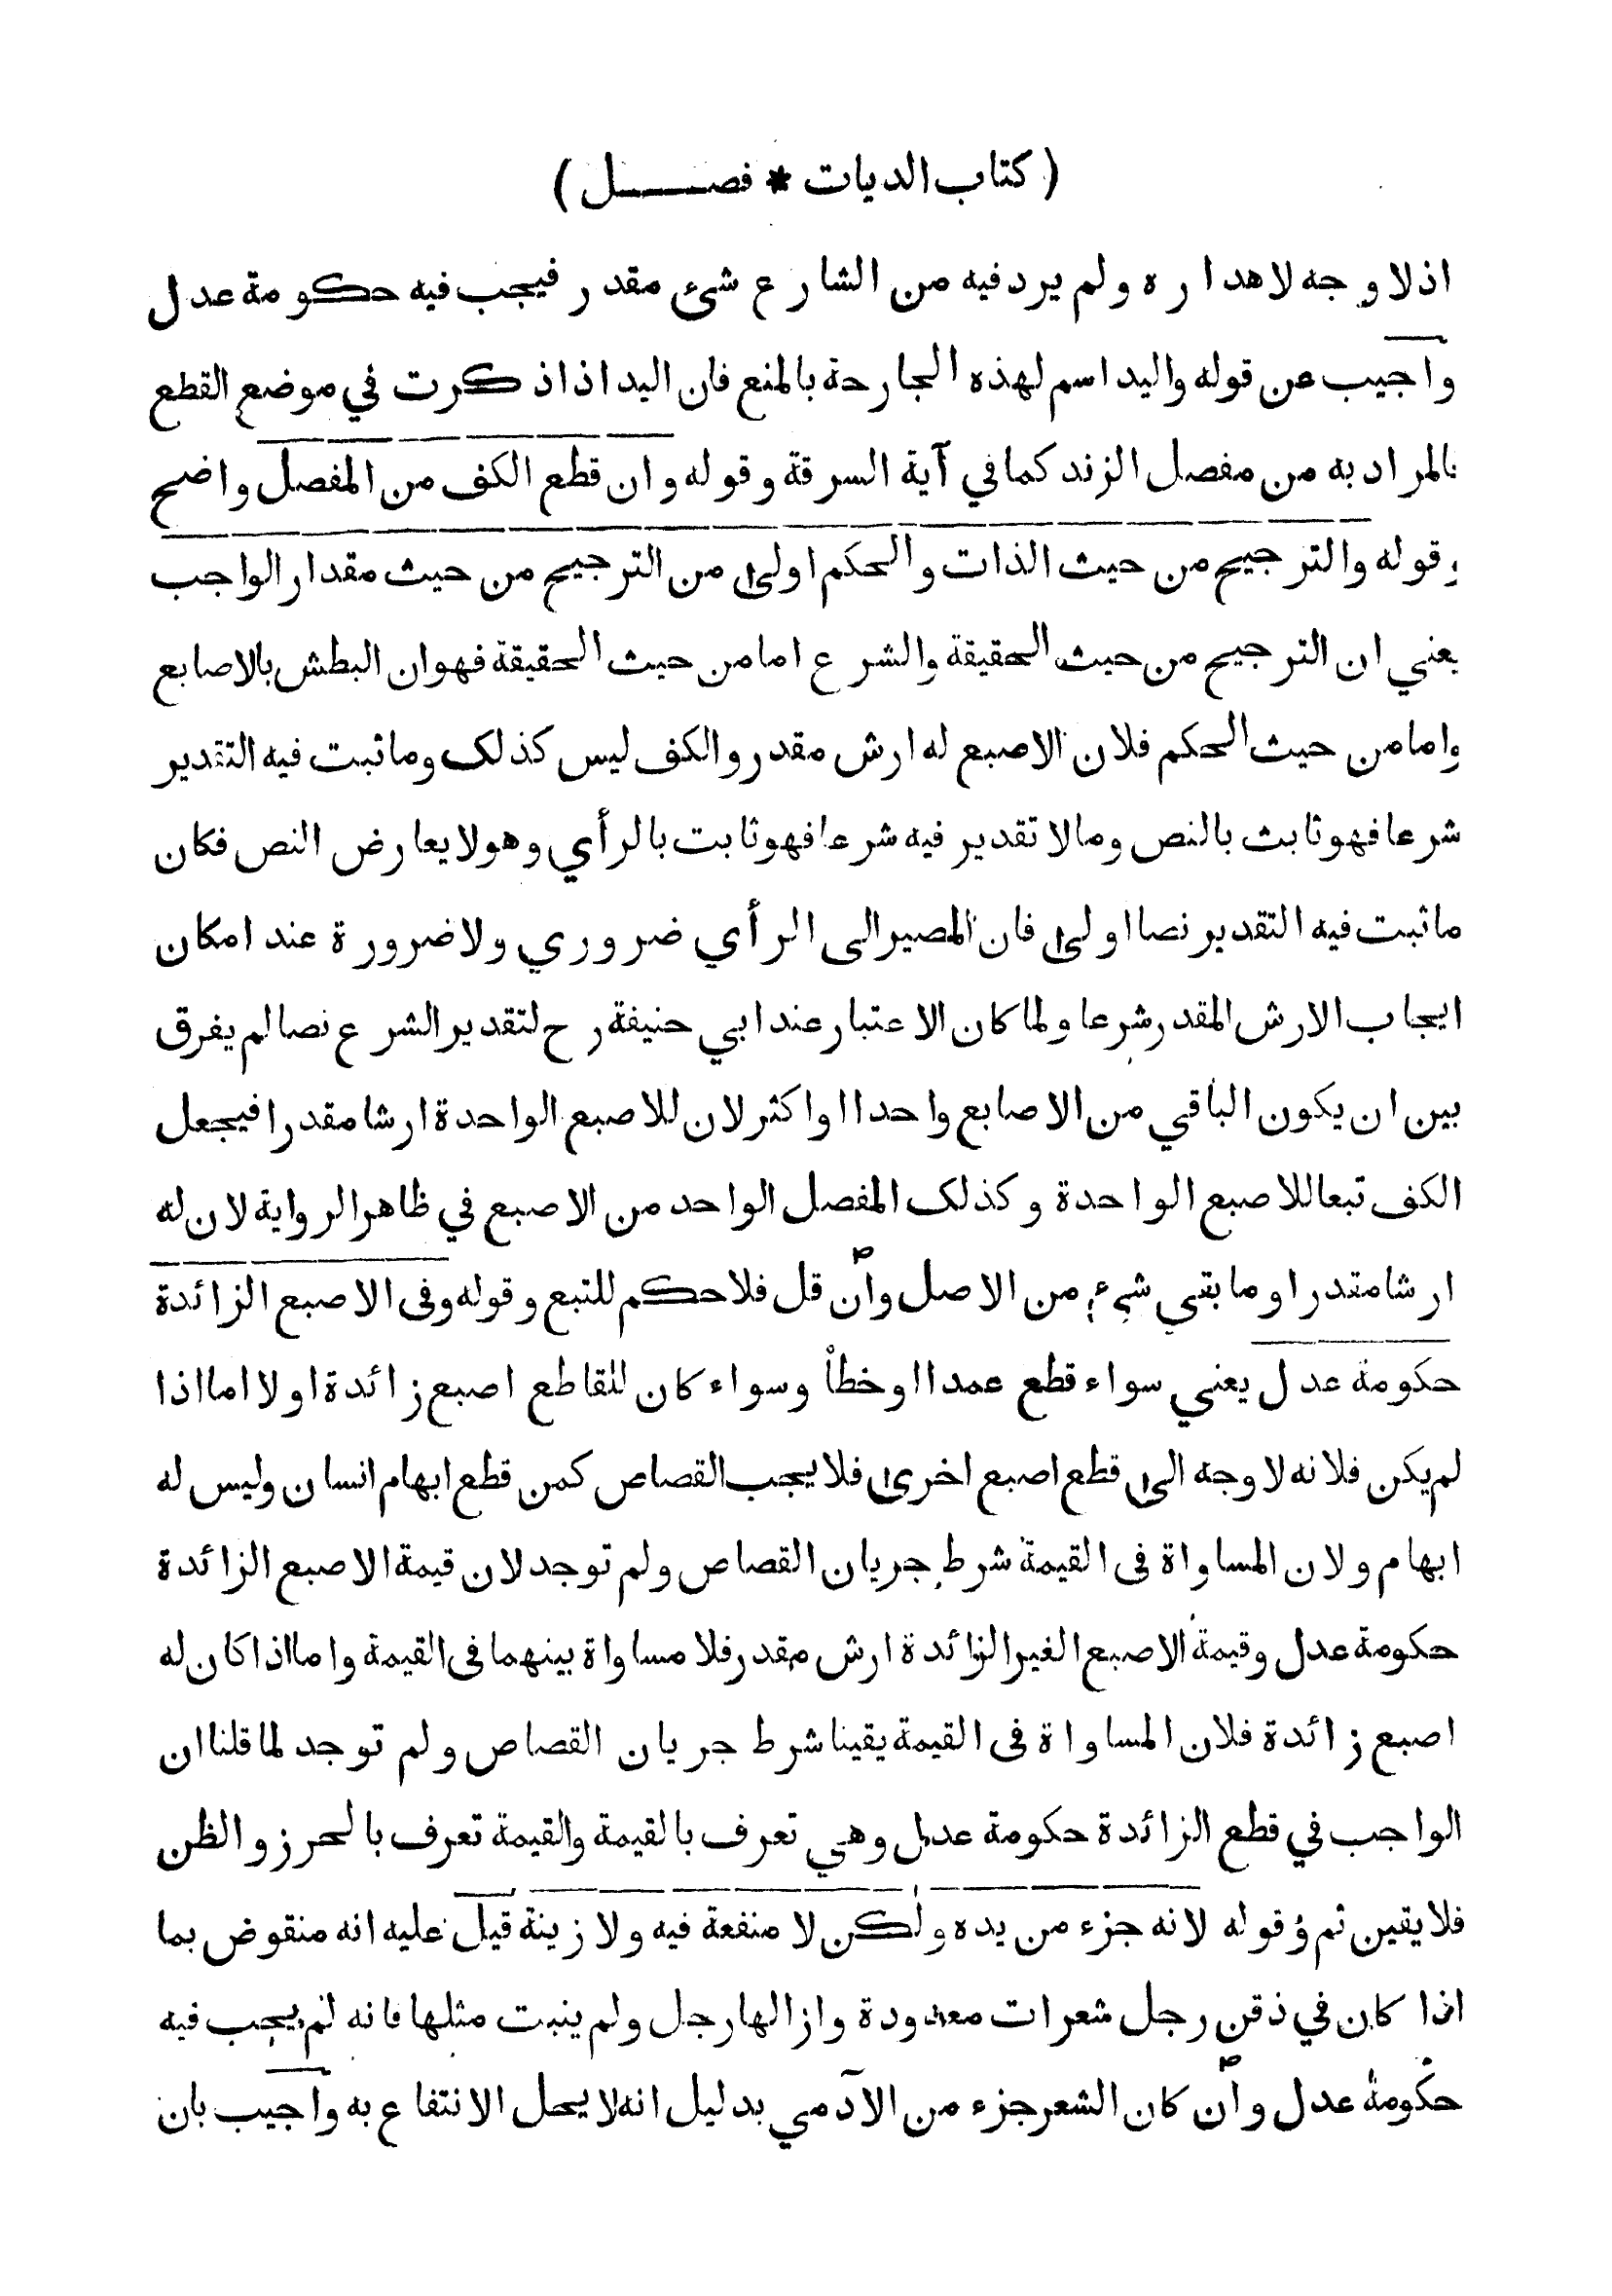 ( كتاب الديات * فصـــــل )
اذ لا وجه لاهداره ولم يرد فيه من الشارع شئ مقدر فيجب فيه حكومة عدل
واجيب عن قوله واليد اسم لهذه الجارحة بالمنع فان اليد اذا ذكرت في موضع القطع
فالمراد به من مفصل الزند كما في آية السرقة وقوله وان قطع الكف من المفصل واضح
وقوله والترجيح من حيث الذات والحكم اولى من الترجيح من حيث مقدار الواجب
يعني ان الترجيح من حيث الحقيقة والشرع اما من حيث الحقيقة فهو ان البطش بالاصابع
واما من حيث الحكم فلان الاصبع له ارش مقدر والكف ليس كذلك وما ثبت فيه التقدير
شرعا فهو ثابت بالنص وما لا تقدير فيه شرعا فهو ثابت بالرأي وهو لا يعارض النص فكان
ما ثبت فيه التقدير نصا اولى فان المصير الى الرأي ضروري ولا ضرورة عند امكان
ايجاب الارش المقدر شرعا ولما كان الاعتبار عند ابي حنيفة رح لتقدير الشرع نصا لم يفرق
بين ان يكون الباقي من الاصابع واحدا او اكثر لان للاصبع الواحدة ارشا مقدرا فيجعل
الكف تبعا للاصبع الواحدة وكذلك المفصل الواحد من الاصبع في ظاهر الرواية لان له
ارشا مقدرا وما بقي شيء من الاصل وان قل فلا حكم للتبع وقوله وفى الاصبع الزائدة
حكومة عدل يعني سواء قطع عمدا او خطأ وسواء كان للقاطع اصبع زائدة او لا اما اذا
لم يكن فلانه لا وجه الى قطع اصبع اخرى فلا يجب القصاص كمن قطع ابهام انسان وليس له
ابهام ولان المساواة فى القيمة شرط جريان القصاص ولم توجد لان قيمة الاصبع الزائدة
حكومة عدل وقيمة الاصبع الغير الزائدة ارش مقدر فلا مساواة بينهما فى القيمة واما اذا كان له
اصبع زائدة فلان المساواة فى القيمة يقينا شرط جريان القصاص ولم توجد لما قلنا ان
الواجب في قطع الزائدة حكومة عدل وهي تعرف بالقيمة والقيمة تعرف بالحرز والظن
فلا يقين ثم وقوله لانه جزء من يده ولكن لا منفعة فيه ولا زينة قيل عليه انه منقوض بما
اذا كان في ذقن رجل شعرات معدودة وازالها رجل ولم ينبت مثلها فانه لم يجب فيه
حكومة عدل وان كان الشعر جزء من الآدمي بدليل انه لا يحل الانتفاع به واجيب بان